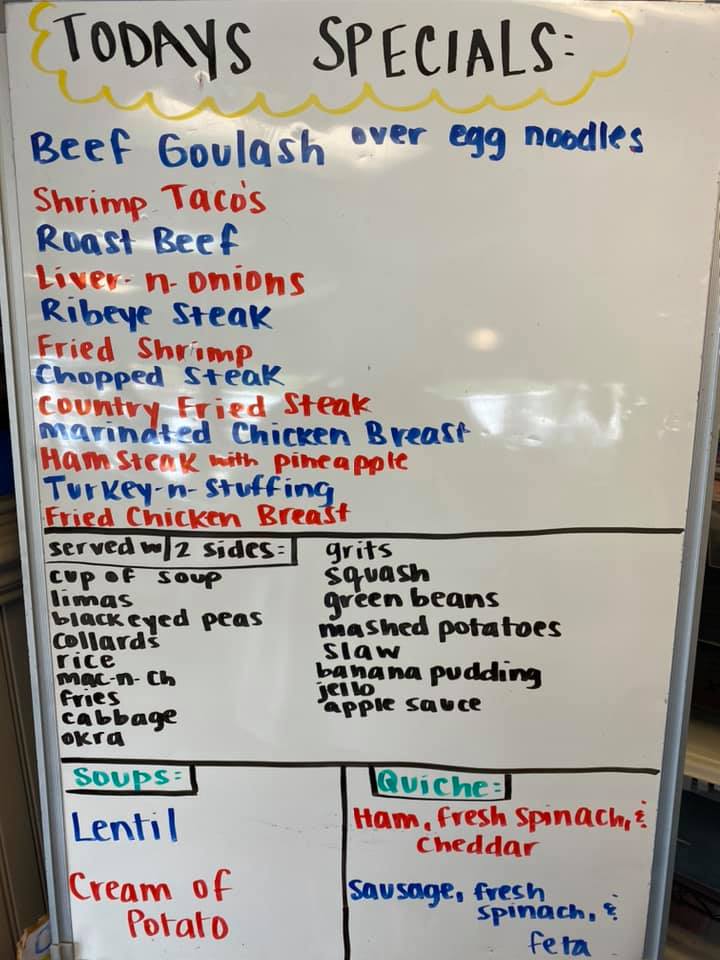 TODAYS SPECIALS:
Beef Goulash over egg noodles
Shrimp Taco's
Roast Beef
Liver-n-onions
Ribeye Steak
Fried Shrimp
Chopped Steak
Country Fried Steak
marinated Chicken Breast
Ham Steak with pineapple
Turkey-n-stuffing
Fried Chicken Breast
served w/2 sides:
cup of soup
limas
blackeyed peas
collards
rice
mac-n-ch
fries
cabbage
okra
grits
squash
green beans
mashed potatoes
slaw
banana pudding
jello
apple sauce
Soups:
Lentil
Cream of
Potato
Quiche:
Ham, fresh spinach, &
cheddar
Sausage, fresh
spinach, &
feta